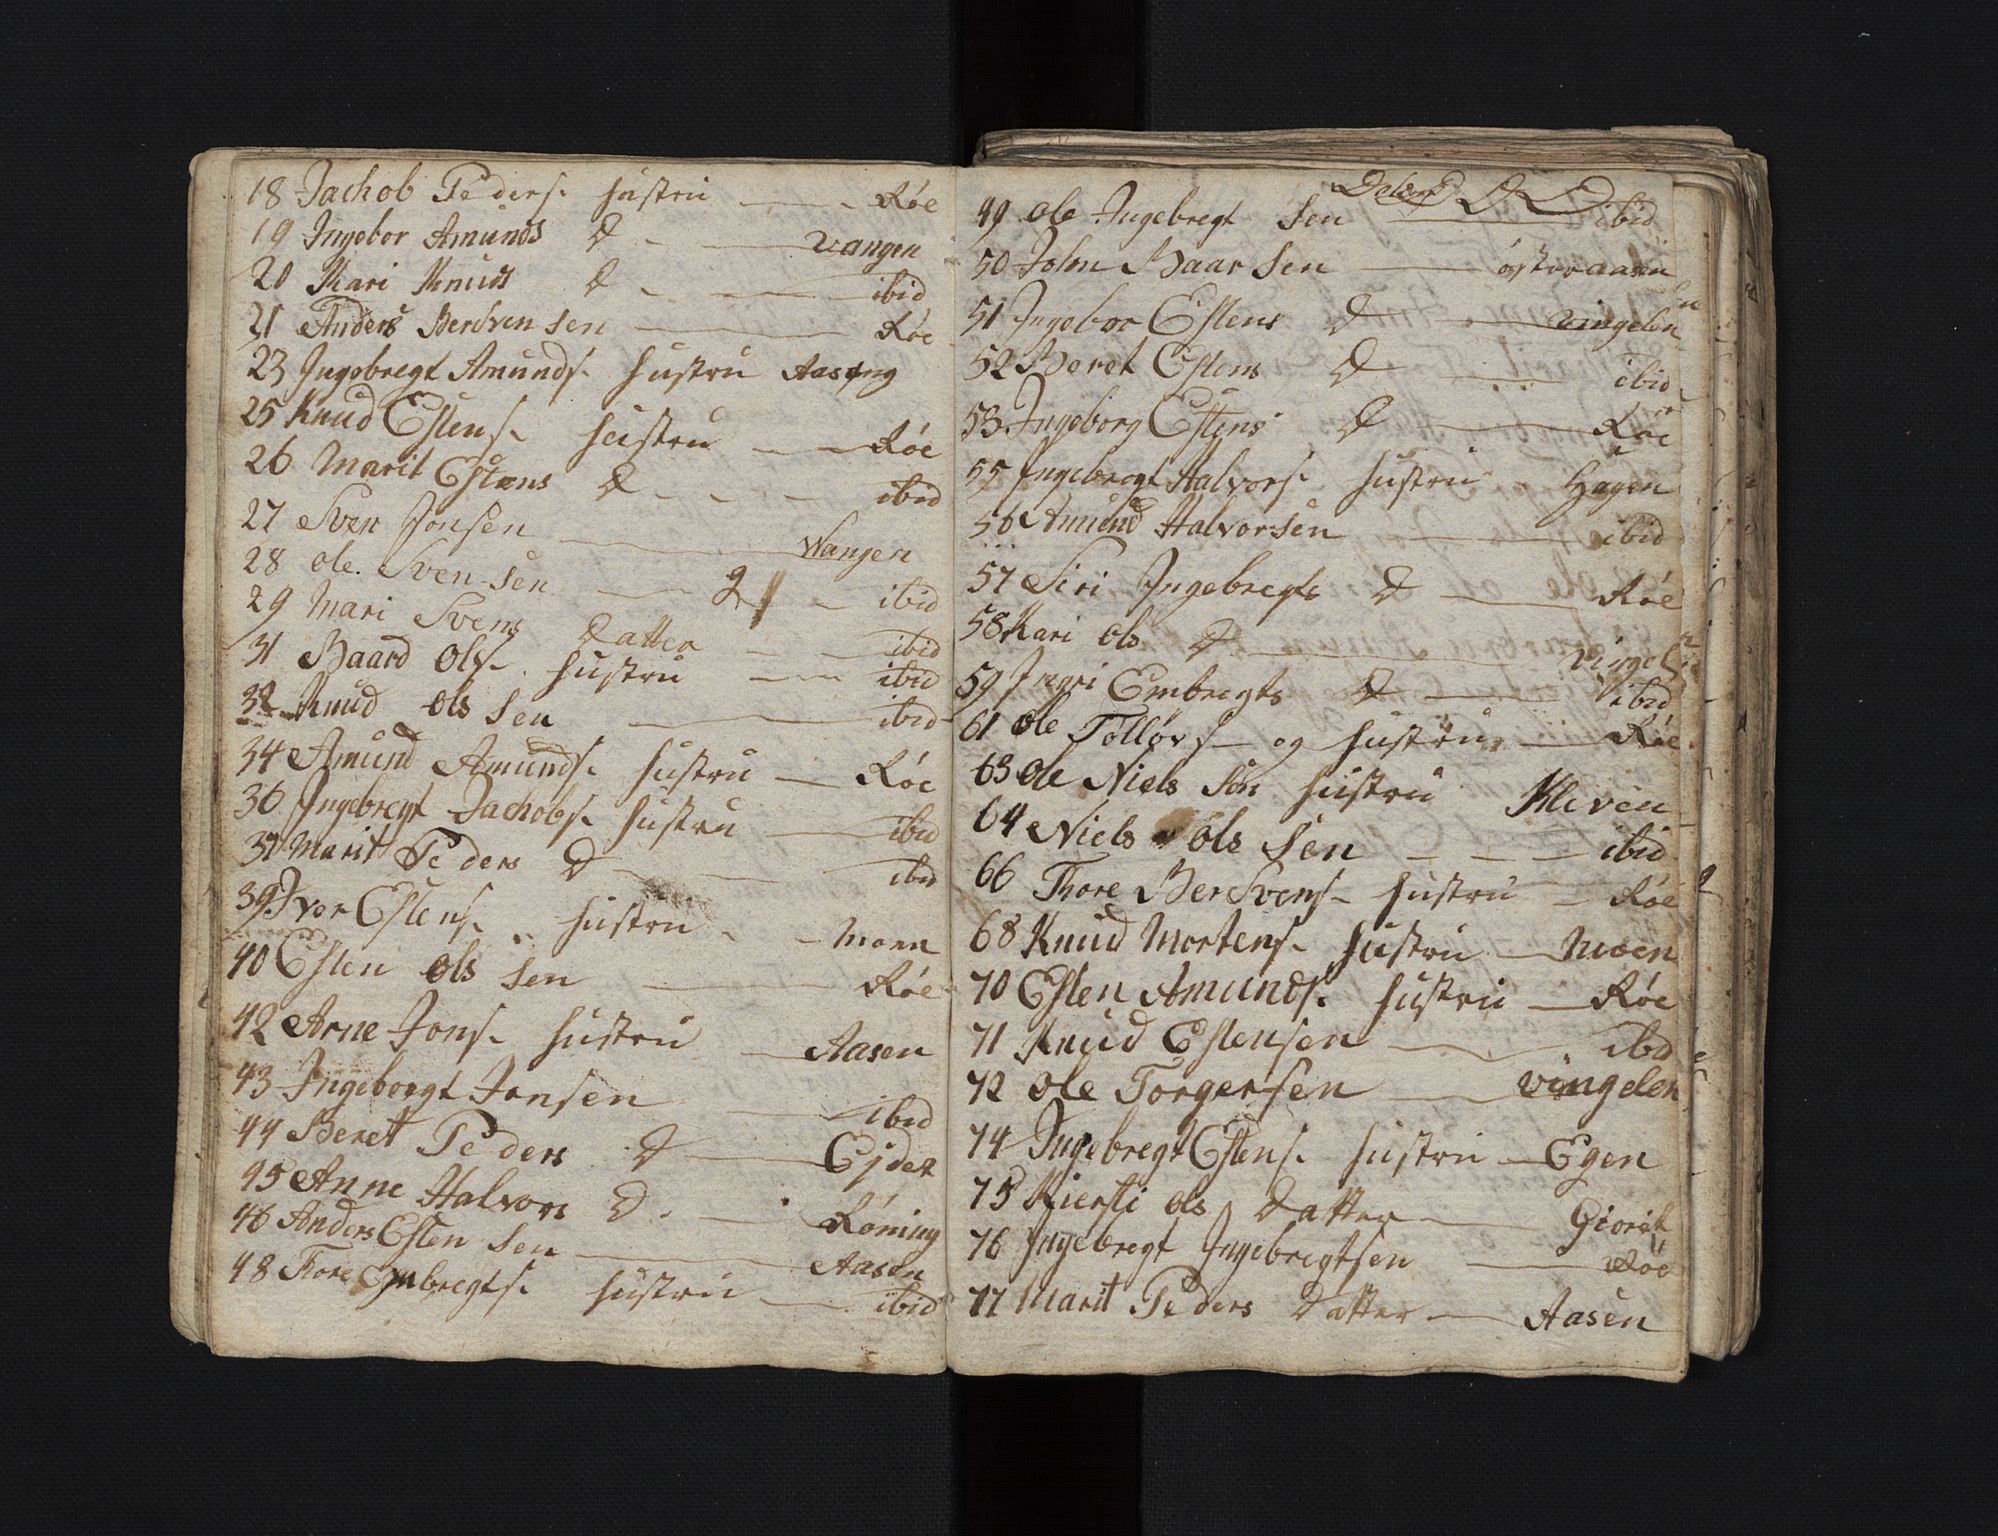 18 Jachob Peders. hustru Røe
19 Ingebor Amunds D vangen
20 Kari Knuds D ibid
21 Anders Bersvensen Røe
23 Ingebregt Amunds. hustru Aasøng
25 Knud Estens. hustru Røe
26 Marit Estens D ibid
27 Sven Jonsen Wangen
28 ole. Svensen ibid
29 Mari Svens Datter ibid
31 Baard Ols. hustru ibid
32 Knud olssen ibid
34 Amund Amunds. hustru Røe
36 Ingebregt Jachobs. hustru ibid
37 Marit Peders D ibid
39 Iver Estens. hustru moen
40 Esten olssen Røe
42 Arne Jons. hustru Aasen
43 Ingeborgt Jonsen ibid
44 Beret Peders D Ejdet
45 Anne Halvors D. Røning
46 Anders Estensen Aasen
48 Tore Embregts. hustru ibid
49 ole Ingebregtsen ibid
50 John Baarsen østvoaasen
51 Ingebor Estens D vingelen
52 Beret Estens D ibid
53 Ingeborg Estens D Røe
55 Ingebregt Halvors. hustru Hagen
56 Amund Halvorsen ibid
57 Siri Ingebregts D Røe
58 Kari ols D vingel
59 Ingri Embregts D ibid
61 ole Tolløvs og hustru Røe
63 Ole Niels Søn hustru Kleven
64 Niels olssen ibid
66 Thore Bersvens hustru Røe
68 Knud Mortens. hustru Moen
70 Esten Amunds. hustru Røe
71 Knud Estensen ibd
72 ole Torgersen vingelen
74 Ingebregt Estens. hustru Egen
75 Kiersti ols Datter
76 Ingebregt Ingebregtsen Røe
77 Marit Peders Datter Aasen